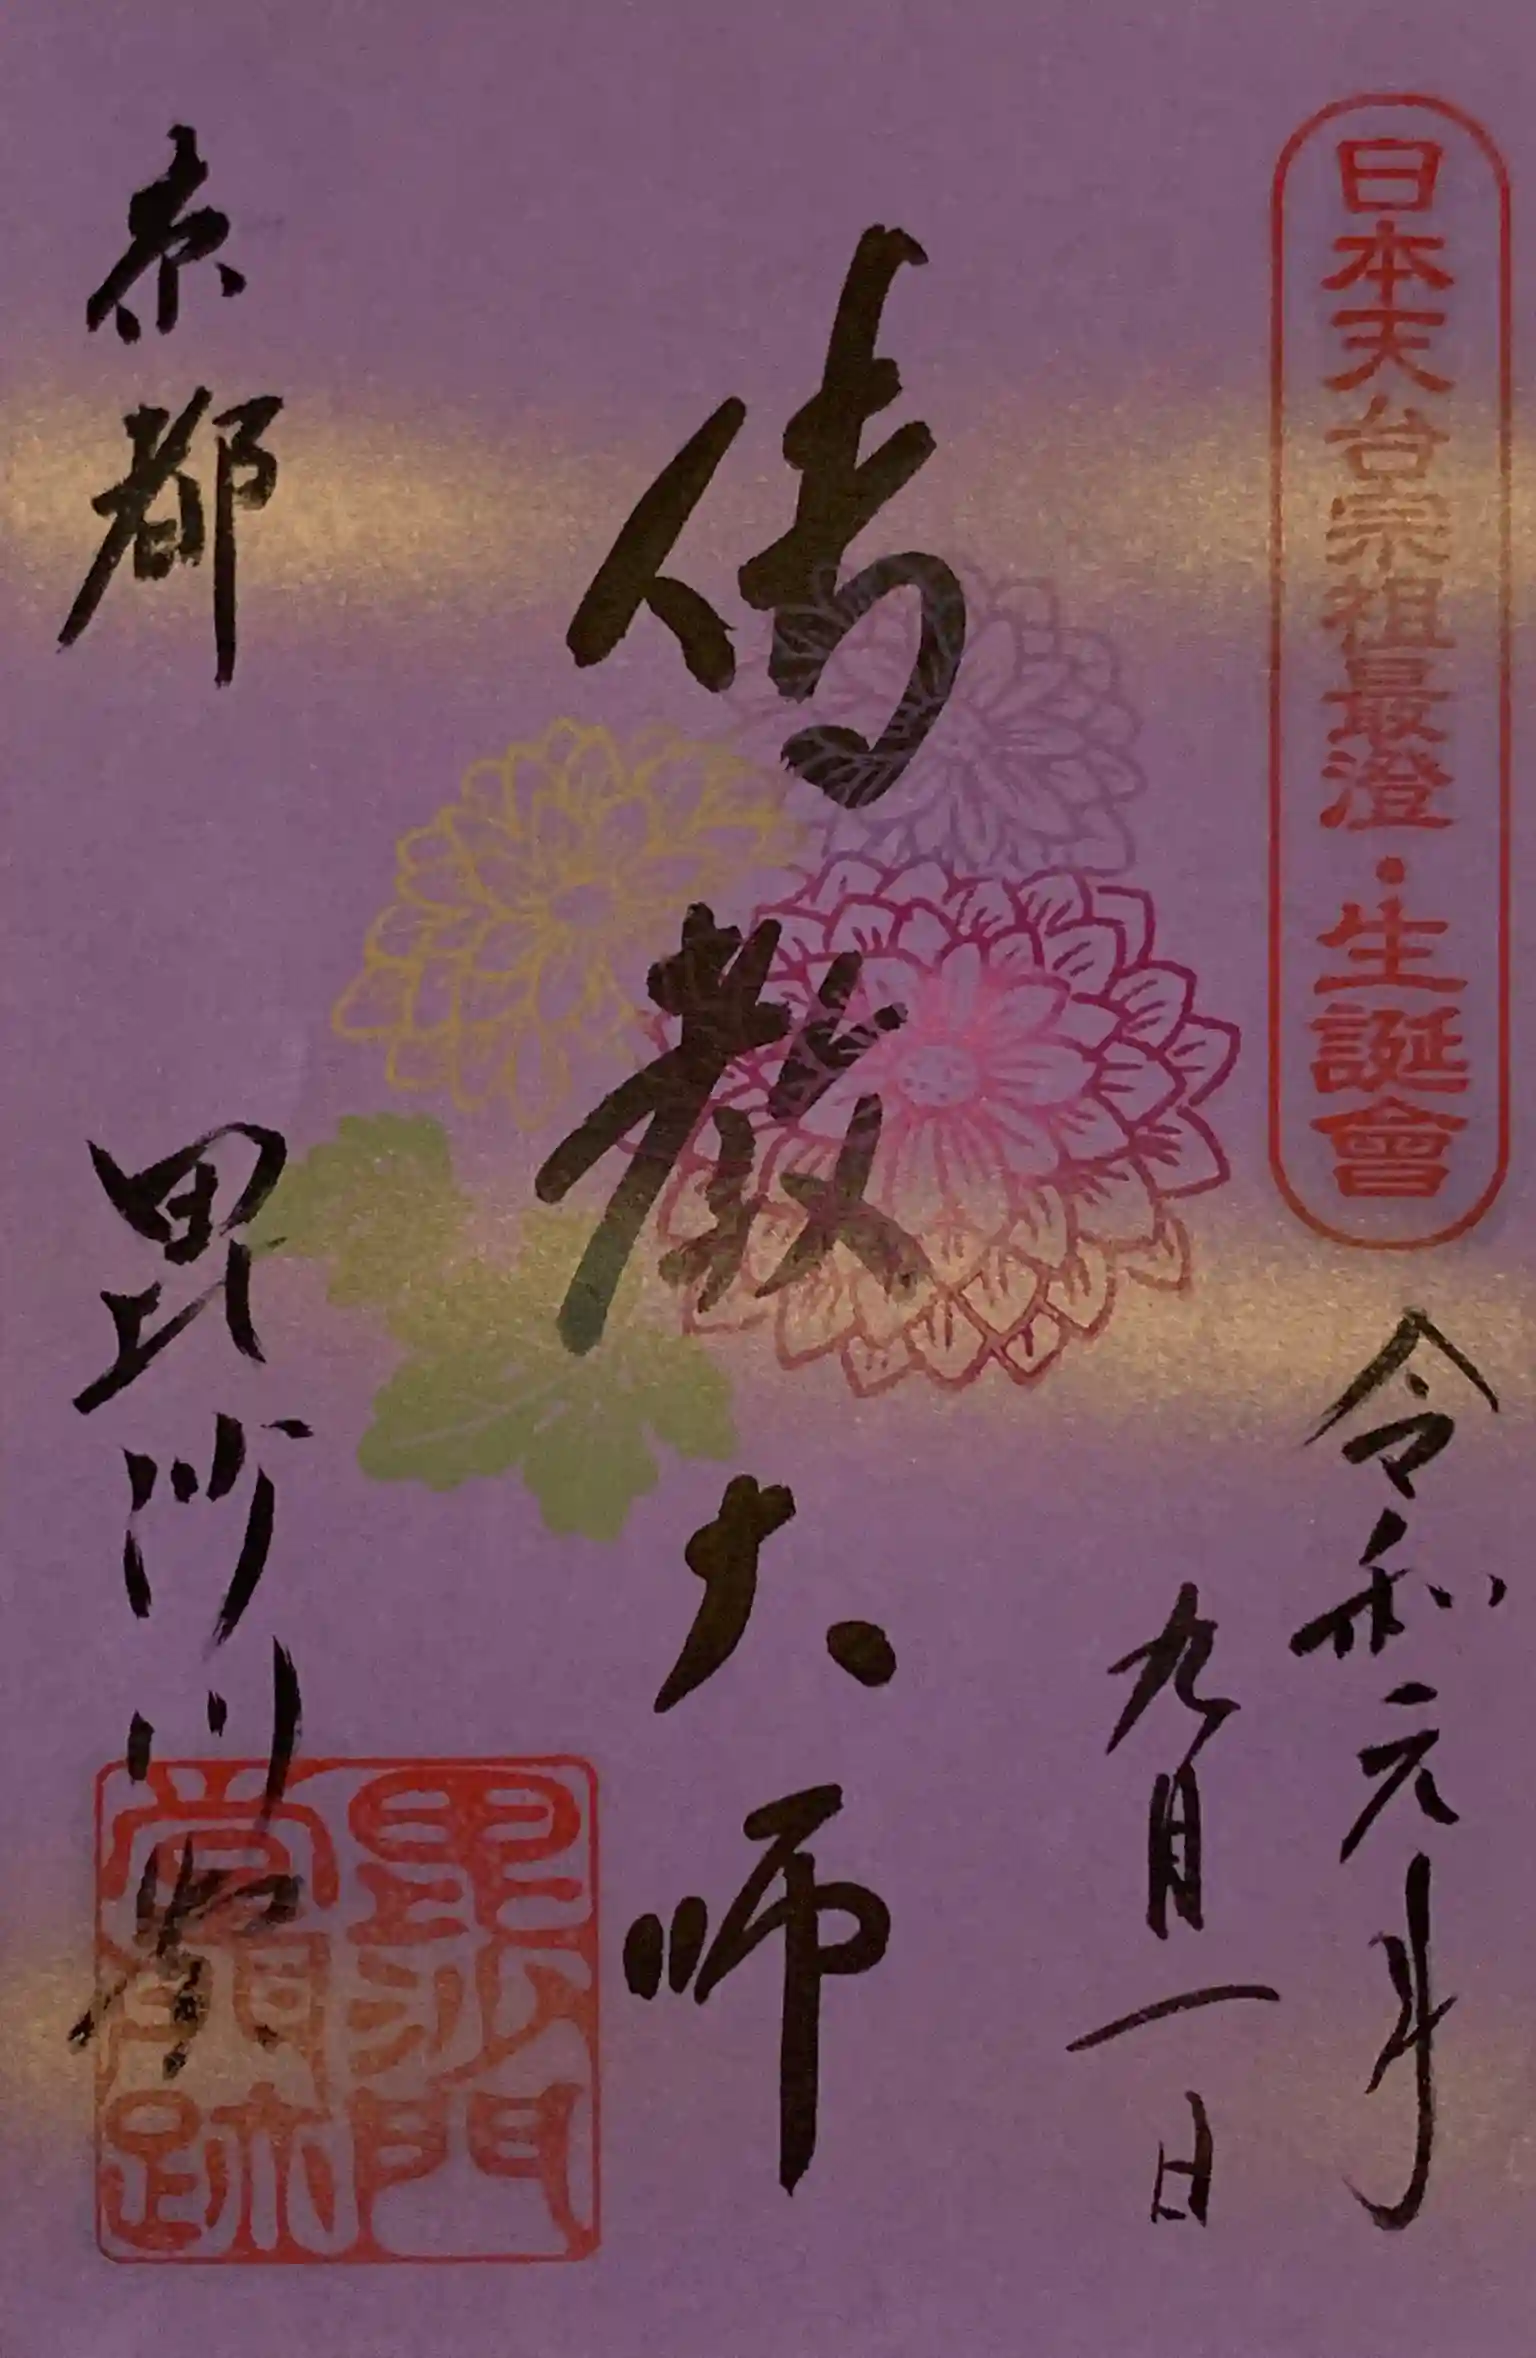 日本天台宗祖最澄・生誕會
令和元年
九月一日
傳教大師
京都
毘沙門堂
毘沙門
堂跡